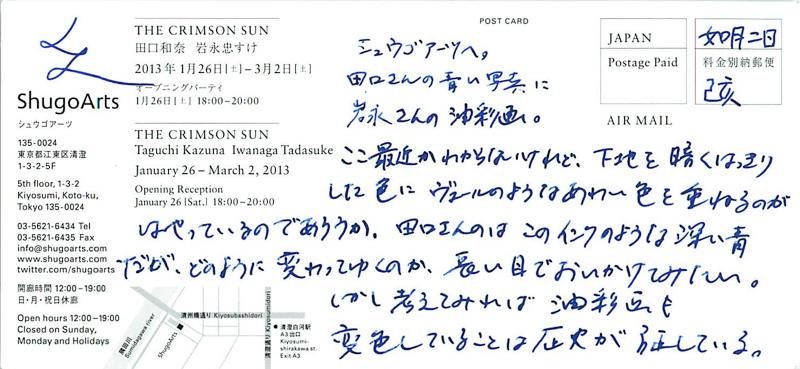 ShugoArts
シュウゴアーツ
135-0024
東京都江東区清澄
1-3-2-5F
5th floor, 1-3-2
Kiyosumi, Koto-ku,
Tokyo 135-0024
03-5621-6434 Tel
03-5621-6435 Fax
info@shugoarts.com
www.shugoarts.com
twitter.com/shugoarts
開廊時間 12:00–19:00
日・月・祝日休廊
Open hours 12:00–19:00
Closed on Sunday,
Monday and Holidays
THE CRIMSON SUN
田口和奈 岩永忠すけ
2013年1月26日[土]–3月2日[土]
オープニングパーティ
1月26日[土] 18:00-20:00
THE CRIMSON SUN
Taguchi Kazuna Iwanaga Tadasuke
January 26 – March 2, 2013
Opening Reception
January 26 [Sat.] 18:00-20:00
POST CARD
JAPAN
Postage Paid
料金別納郵便
AIR MAIL
如月二日
己亥
シュウゴアーツへ。
田口さんの青い写真に
岩永さんの油彩画。
ここ最近かわからないけれど、下地を暗くはっきり
した色にヴェールのようなあわい色を重ねるのが
はやっているのであろうか。田口さんのはこのインクのような深い青
だが、どのように変わってゆくのか、長い目でおいかけてみたい。
しかし考えてみれば油彩画も
変色していることは歴史が証している。
隅田川
Sumidagawa river
ShugoArts
清州橋通り Kiyosubashidori
清澄通り Kiyosumidori
清澄白河駅
A3出口
Kiyosumi-
shirakawa st.
Exit A3